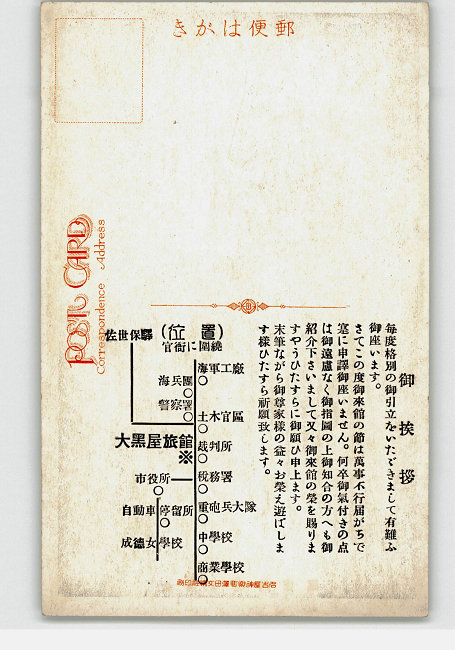 きがは便郵
POST CARD
Correspondence Address
御挨拶
毎度格別の御引立をいたゞきまして有難ふ
御座います。
さてこの度御來館の節は萬事不行届がちで
寔に申譯御座いません。何卒御氣付きの点
は御遠慮なく御指圖の上御知合の方へも御
紹介下さいまして又々御來館の榮を賜りま
すやうひたすらに御願ひ申上ます。
末筆ながら御尊家様の益々お榮え遊ばしま
す樣ひたすら祈願致します。
(位置)
官衙に圍繞
佐世保驛
海軍工廠
海兵團
警察署
土木官區
大黑屋旅館
※
裁判所
市役所
稅務署
自動車停留所
重砲兵大隊
中學校
成德女學校
商業學校